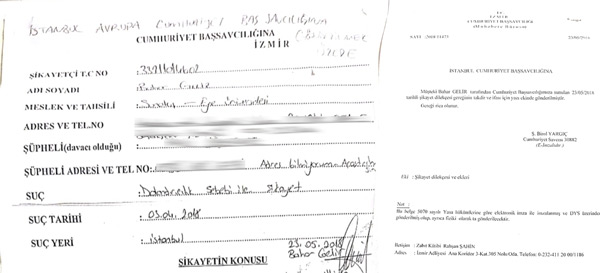 İSTANBUL AVRUPA Cumhuriyet BAŞSAVCILIĞINA
CUMHURİYET BAŞSAVCILIĞINA
İZMİR
ŞİKAYETÇİ T.C NO
ADI SOYADI
MESLEK VE TAHSİLİ
ADRES VE TEL.NO
ŞÜPHELİ(davacı olduğu)
ŞÜPHELİ ADRESİ VE TEL NO: Adres bilmiyorum
SUÇ Dolandırıcılık Sebebi ile şikayet
SUÇ TARİHİ 03.04.2018
SUÇ YERİ İstanbul
23.05.2018
Bahar Gelir
ŞİKAYETİN KONUSU
T.C.
İZMİR
CUMHURİYET BAŞSAVCILIĞI
SAYI :
23/05/2018
İSTANBUL CUMHURİYET BAŞSAVCILIĞINA
Müşteki Bahar GELİR tarafından Cumhuriyet Başsavcılığımıza sunulan 23/05/2018
tarihli şikayet dilekçesi gereğinin takdir ve ifası için yazı ekinde gönderilmiştir.
Gereği rica olunur.
Ş. Birol YARGIÇ
Cumhuriyet Savcısı 30882
(E-İmzalıdır)
Eki : Şikayet dilekçesi ve ekleri
Not :
Bu belge 5070 sayılı Yasa hükümlerine göre elektronik imza ile imzalanmış ve DYS üzerinden
gönderilmiş olup, ayrıca fiziki olarak da gönderilecektir.
İletişim : Zabıt Katibi Rahşan ŞAHİN
Adres : İzmir Adliyesi Ana Koridor 3-Kat,305 Nolu Oda. Telefon: 0-232-411